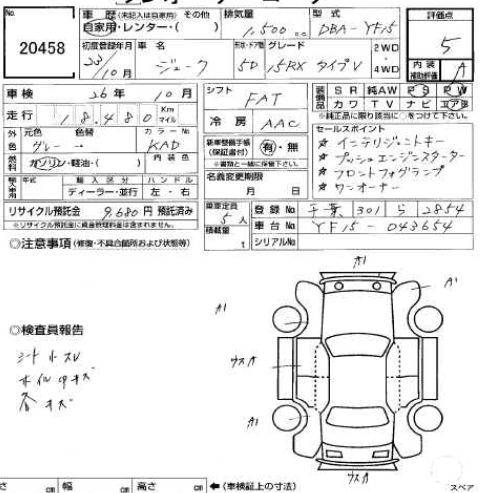 No. 20458
車歴(未記入は自家用) その他 排気量 型式 評価点
自家用・レンター・( ) 1,500 c.c. DBA-YF15 5
初度登録年月 車名 形状・ドア数 グレード 2WD・4WD 内装補助評価
23/10月 ジューク 5D 15RX タイプV A
車検 26年 10月 シフト FAT 装備品 SR 純AW PS PW
カワ TV ナビ エアB
走行 18,480 Km マイル 冷房 AAC ※純正品に限り該当に○をつけて下さい。
外色 元色 色替 カラーNo.
グレー → KAD
新車整備手帳(保証書付) 有・無
※書類と一緒に保管下さい。
セールスポイント
☆ インテリジェントキー
☆ プッシュエンジンスターター
☆ フロントフォグランプ
☆ ワンオーナー
燃料 ガソリン・軽油・( ) 内装色
名義変更期限
月 日
輸入車用 年式 輸入区分 ハンドル
ディーラー・並行 左・右
リサイクル預託金 9,680円 預託済み
※リサイクル預託金に資金管理料金は含まれません。
乗車定員 5人 登録No. 千葉 301 ら 2854
積載量 t 車台No. YF15-043654
シリアルNo.
◎注意事項(修復・不具合箇所および状態等)
A1
A1
◎検査員報告
シート小スレ
ウスA
A1
ウスA
さ cm 幅 cm 高さ cm ←(車検証上の寸法)
スペア